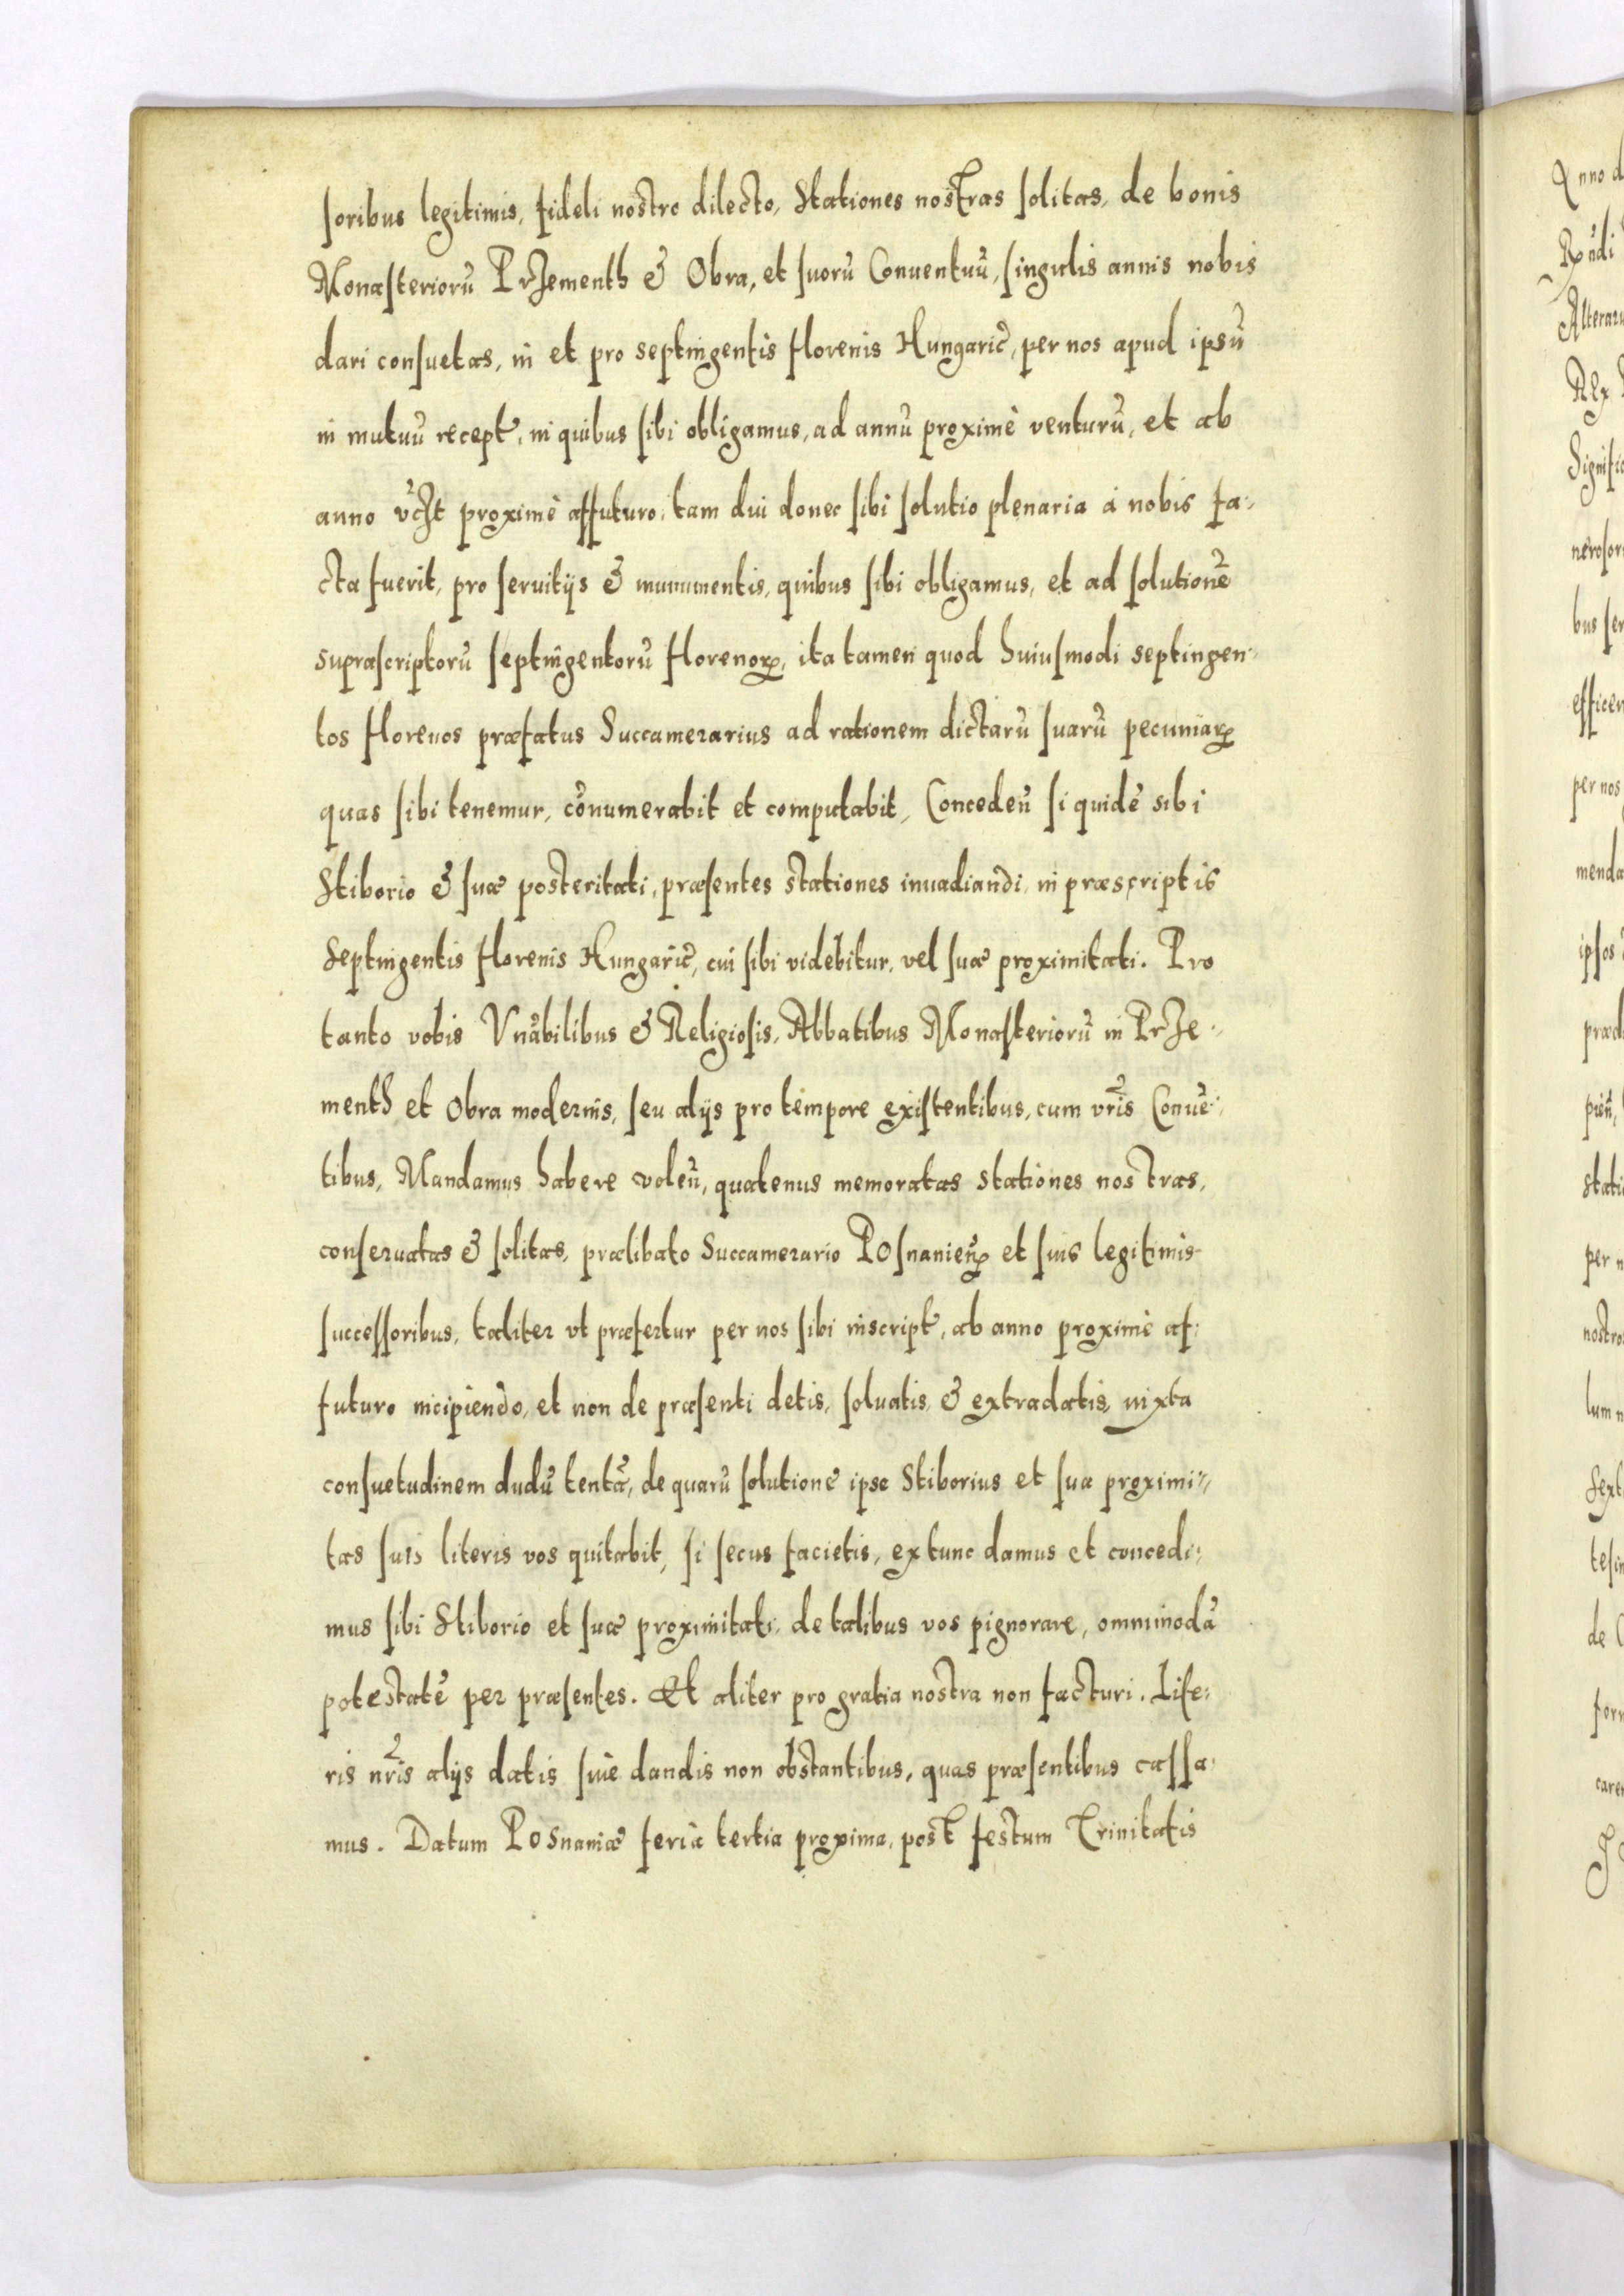 soribus legitimis, fideli nostro dilecto, Stationes nostras solitas, de bonis
Monasterioru͂ Przementh & Obra, et suoru͂ Conuentuu͂, singulis annis nobis
dari consuetas, in et pro septingentis florenis Hungaric͂, per nos apud ipsu͂
in mutuu͂ recept͂, in quibus sibi obligamus, ad annu͂ proximè venturu͂, et ab
anno vc͂zt proximè affuturo, tam diu donec sibi solutio plenaria à nobis fa-
cta fuerit, pro seruitijs & munimentis, quibus sibi obligamus, et ad solutione͂
suprascriptoru͂ septingentoru͂ florenoꝝ, ita tamen quod huiusmodi septingen-
tos florenos præfatus Succamerarius ad rationem dictaru͂ suaru͂ pecuniaꝝ
quas sibi tenemur, co͂numerabit et computabit, Concedeñ siquide͂ sibi
Stiborio & suæ posteritati, præsentes stationes inuadiandi, in præscriptis
Septingentis florenis Hungaric͂, cui sibi videbitur, vel suæ proximitati. Pro
tanto vobis Vna͂bilibus & Religiosis, Abbatibus Monasterioru͂ in Prze-
menth et Obra modernis, seu alijs pro tempore existentibus, cum vr͂is Conue͂-
tibus, Mandamus habere voleñ, quatenus memoratas stationes nostras,
conseruatas & solitas, prælibato Succamerario Posnanieñ et suis legitimis
successoribus, taliter vt præfertur per nos sibi inscript͂, ab anno proximè af-
futuro incipiendo, et non de præsenti detis, soluatis & extradatis, iuxta
consuetudinem dudu͂ tenta͂, de quaru͂ solutione͂ ipse Stiborius et sua proximi-
tas suis literis vos quitabit, si secus facietis, extunc damus et concedi-
mus sibi Stiborio et suæ proximitati, de talibus vos pignorare, omnimoda͂
potestate͂ per præsentes. Et aliter pro gratia nostra non facturi. Lite-
ris nr͂is alijs datis siue dandis non obstantibus, quas præsentibus cassa-
mus. Datum Posnaniæ feria tertia proxima, post festum Trinitatis
Anno d
Rudi
Alteraru
Rex
Signific
nerosor
bus ser
efficen
per nos
menda
ipsos
præd
pieñ,
stati
per n
nostro
lum n
Sext
tesim
de
form
carer